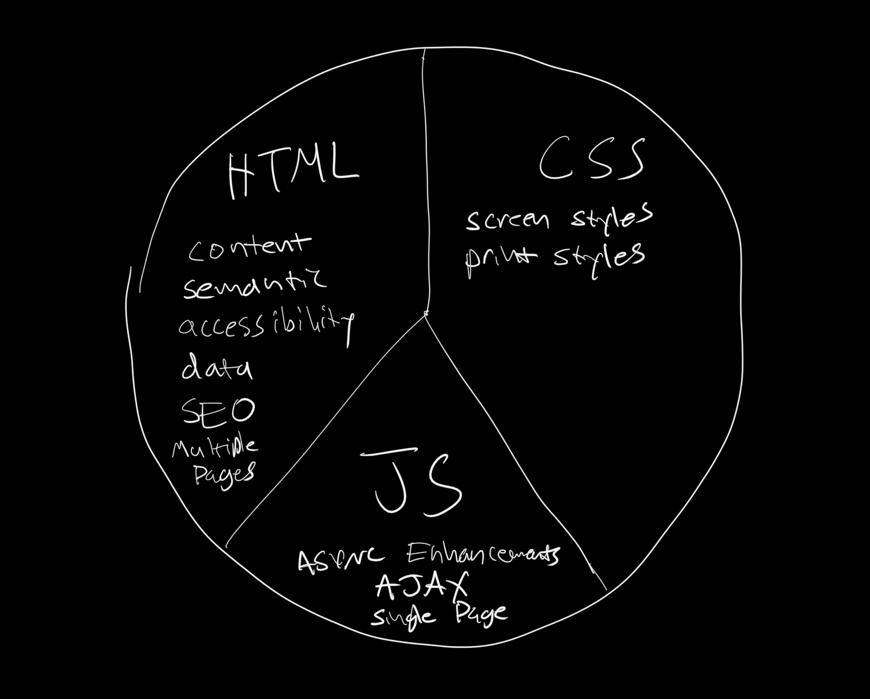 HTML
content
semantic
accessibility
data
SEO
Multiple
Pages
CSS
screen styles
print styles
JS
ASYNC Enhancements
AJAX
Single Page